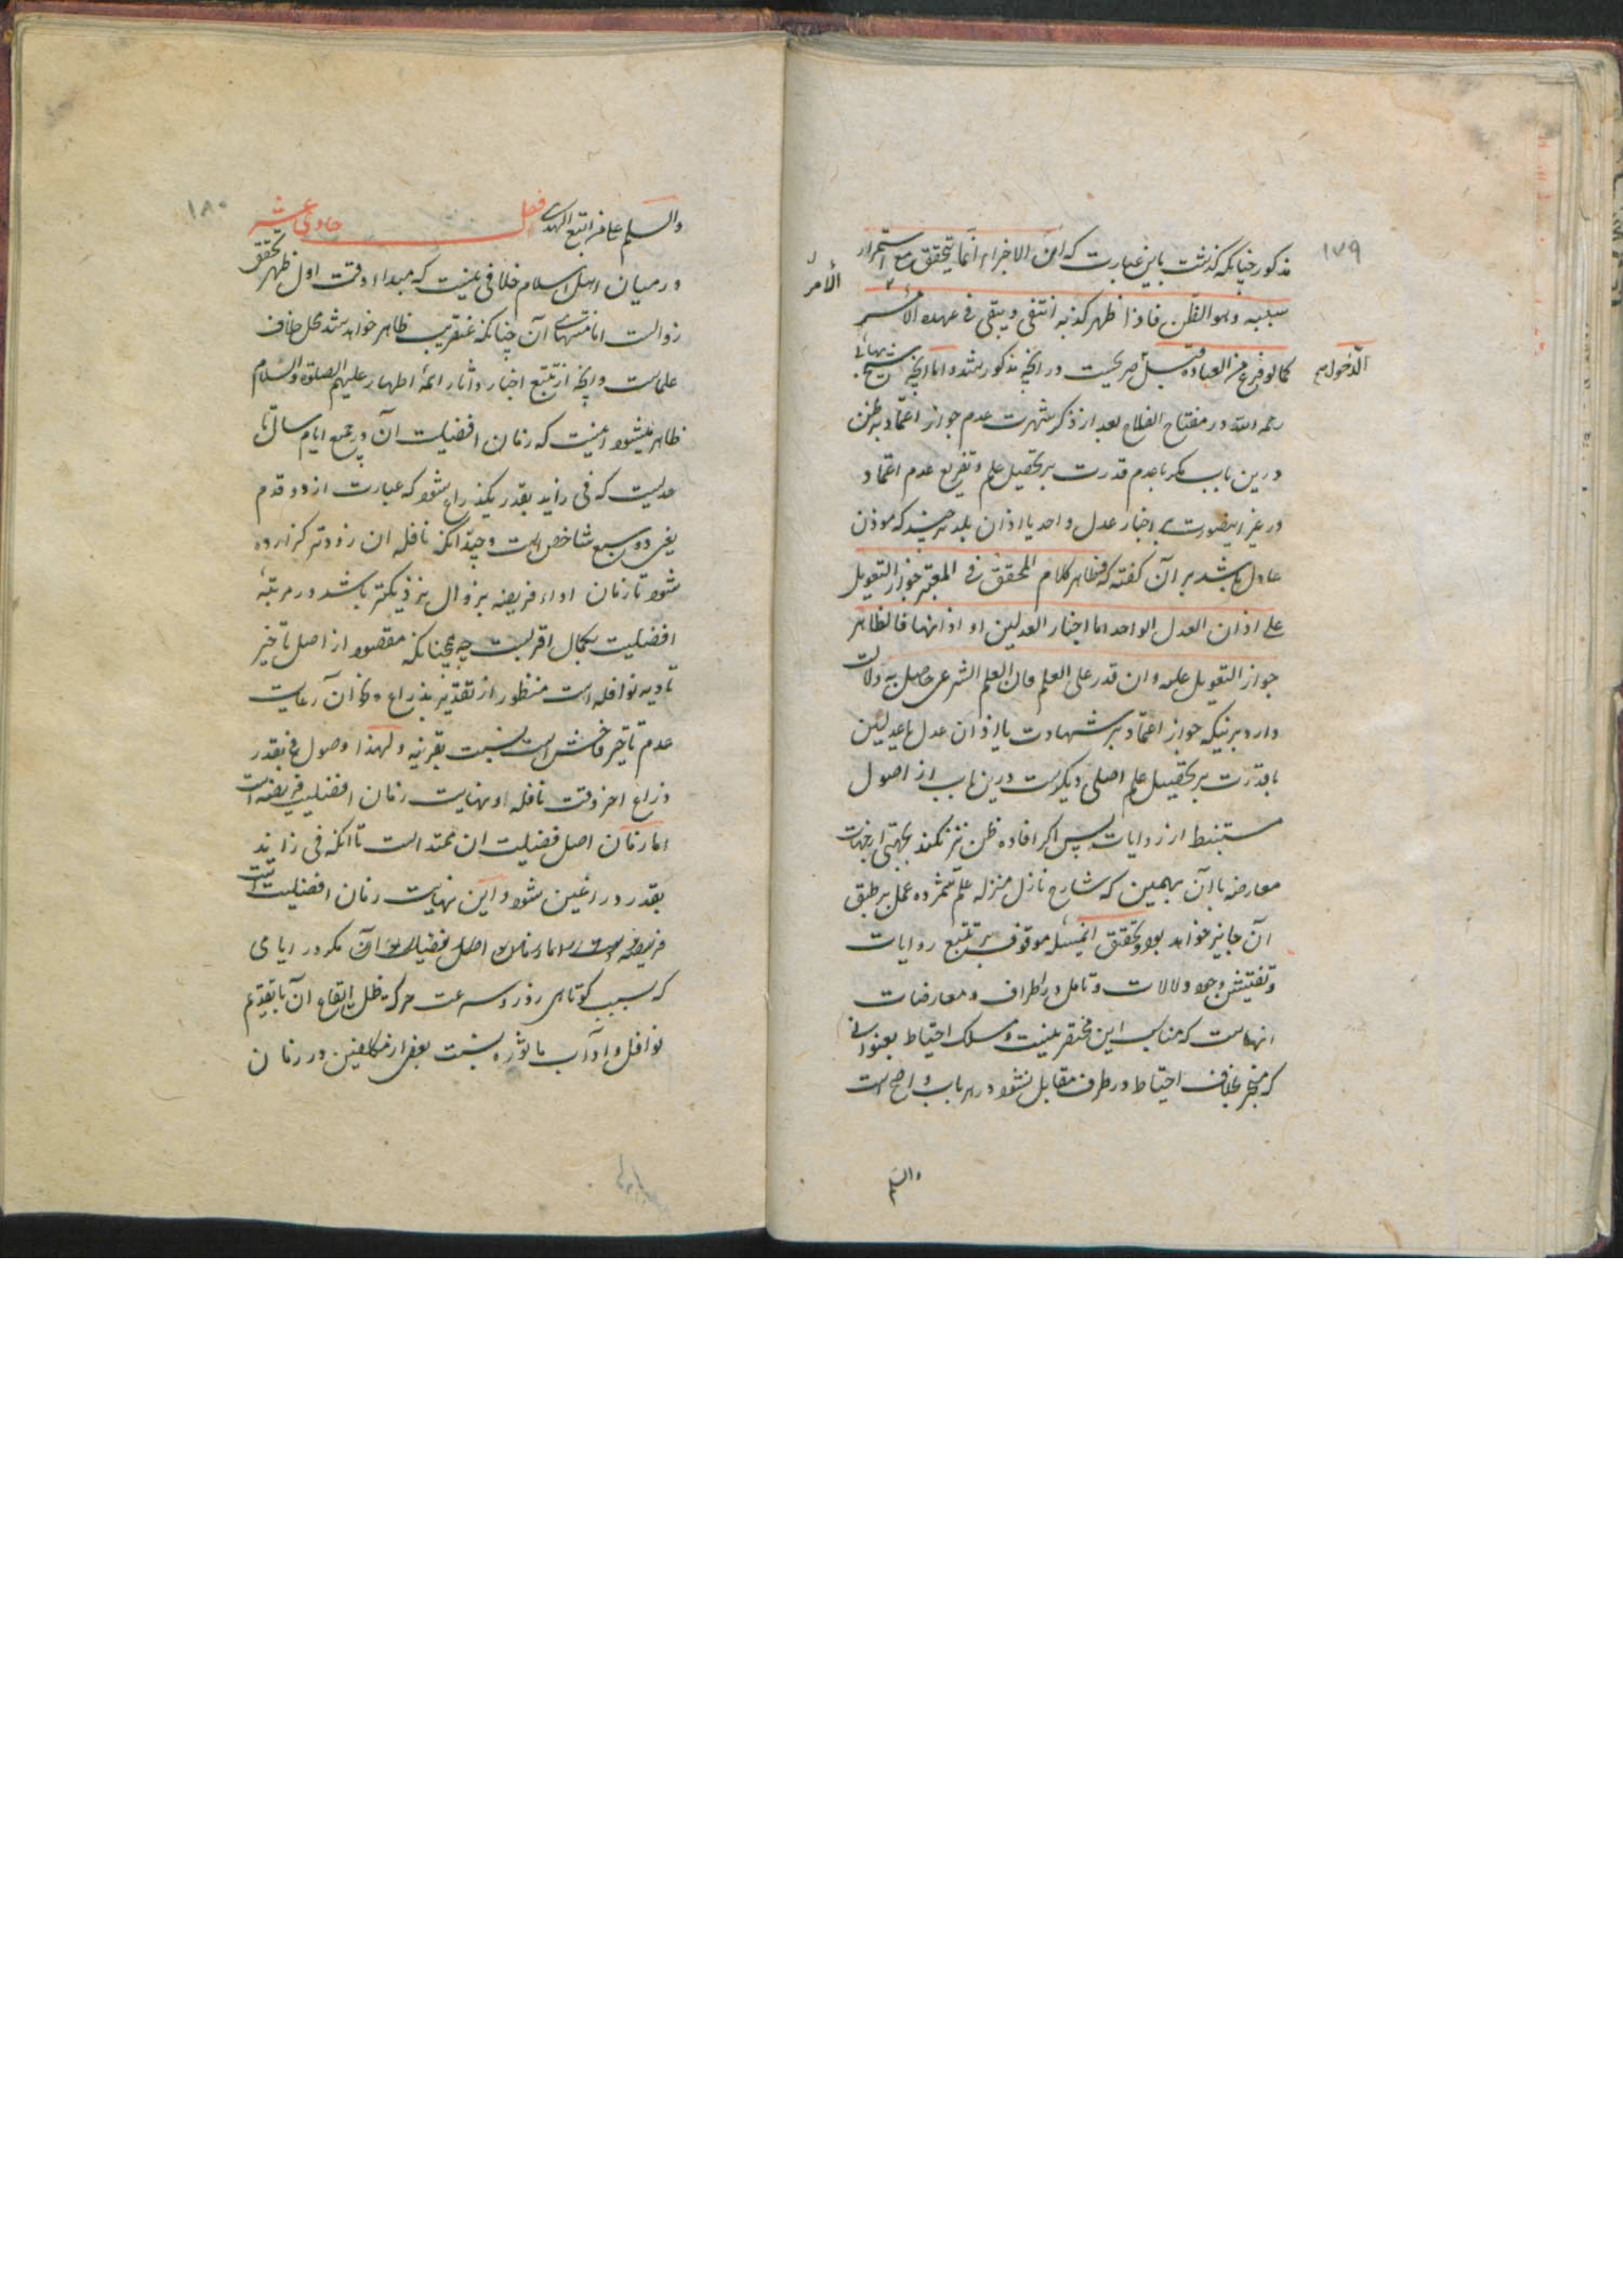 ۱۷۹
مذکور چنانکه گذشت باین عبارت که ان الاجزاء انما یتحقق مع استمرار
سببیه و هو الظن فاذا ظهر کذبه انتفی و یبقی فی عهدة الامر
الامر
کما لو فرغ من العبادة قبل صریحست در آنچه مذکور شد و اما آنچه شیخ بهائی
الدخول
رحمه الله در مفتاح الفلاح بعد از ذکر شهرت عدم جواز اعتماد بر ظن
درین باب مگر با عدم قدرت بر تحصیل علم و تفریع عدم اعتماد
در غیر اینصورت بر اخبار عدل واحد یا اذان بلد هر چند که موذن
عادل باشد بر آن گفته که فظاهر کلام المحقق فی المعتبر جواز التعویل
علی اذان العدل الواحد اما اخبار العدلین او اذانهما فالظاهر
جواز التعویل علیه و ان قدر علی العلم فان العلم الشرعی حاصل به دلالت
دارد برینکه جواز اعتماد بر شهادت یا اذان عدل یا عدلین
با قدرت بر تحصیل علم اصلی دیگرست درین باب از اصول
مستنبط از روایات پس اگر افاده ظن نیز نکند بجهتی از جهات
معارضه با آن بهمین که شارع نازل منزله علم شمرده عمل بر طبق
آن جایز خواهد بود و تحقیق اینمسئله موقوف بر تتبع روایات
و تفتیش وجوه دلالات و تامل در اطراف و معارضات
انهاست که مناسب این مختصر نیست و مسلک احتیاط بعنوانی
که منجر بخلاف احتیاط در طرف مقابل نشود در هر باب واضح است
والسلم
۱۸۰
والسلم علی من اتبع الهدی فصل حادی عشر
در میان اهل اسلام خلافی نیست که مبداء وقت اول ظهر تحقق
زوالست اما منتهای آن چنانکه عنقریب ظاهر خواهد شد محل خلاف
علماست و آنچه از تتبع اخبار و آثار ائمه اطهار علیهم الصلوة والسلام
ظاهر میشود اینست که زمان افضلیت آن در جمیع ایام سال تا
حدیست که فی زاید بقدر یکذراع شود که عبارت از دو قدم
یعنی دو سبع شاخص است و چندانکه نافله ان زودتر گزارده
شود تا زمان اداء فریضه بزوال نزدیکتر باشد در مرتبه
افضلیت بکمال اقربست چه همچنانکه مقصود از اصل تاخیر
تادیه نوافله است منظور از تقدیر بذراع و مانند آن رعایت
عدم تاخیر فاحش است نسبت بقرینه و لهذا وصول فی بقدر
ذراع اخر وقت نافله و نهایت زمان افضلیت فریضه است
اما زمان اصل فضیلت ان ممتد است تا آنکه فی زاید
بقدر ذراعین شود و این نهایت زمان افضلیت است
فریضه است اما زمان اصل فضیلت آن مگر در ایامی
که بسبب کوتاهی روز و سرعت حرکت ظل ایقاع آن با تقدیم
نوافل و آداب ماثوره نسبت ببعضی از مکلفین در زمان